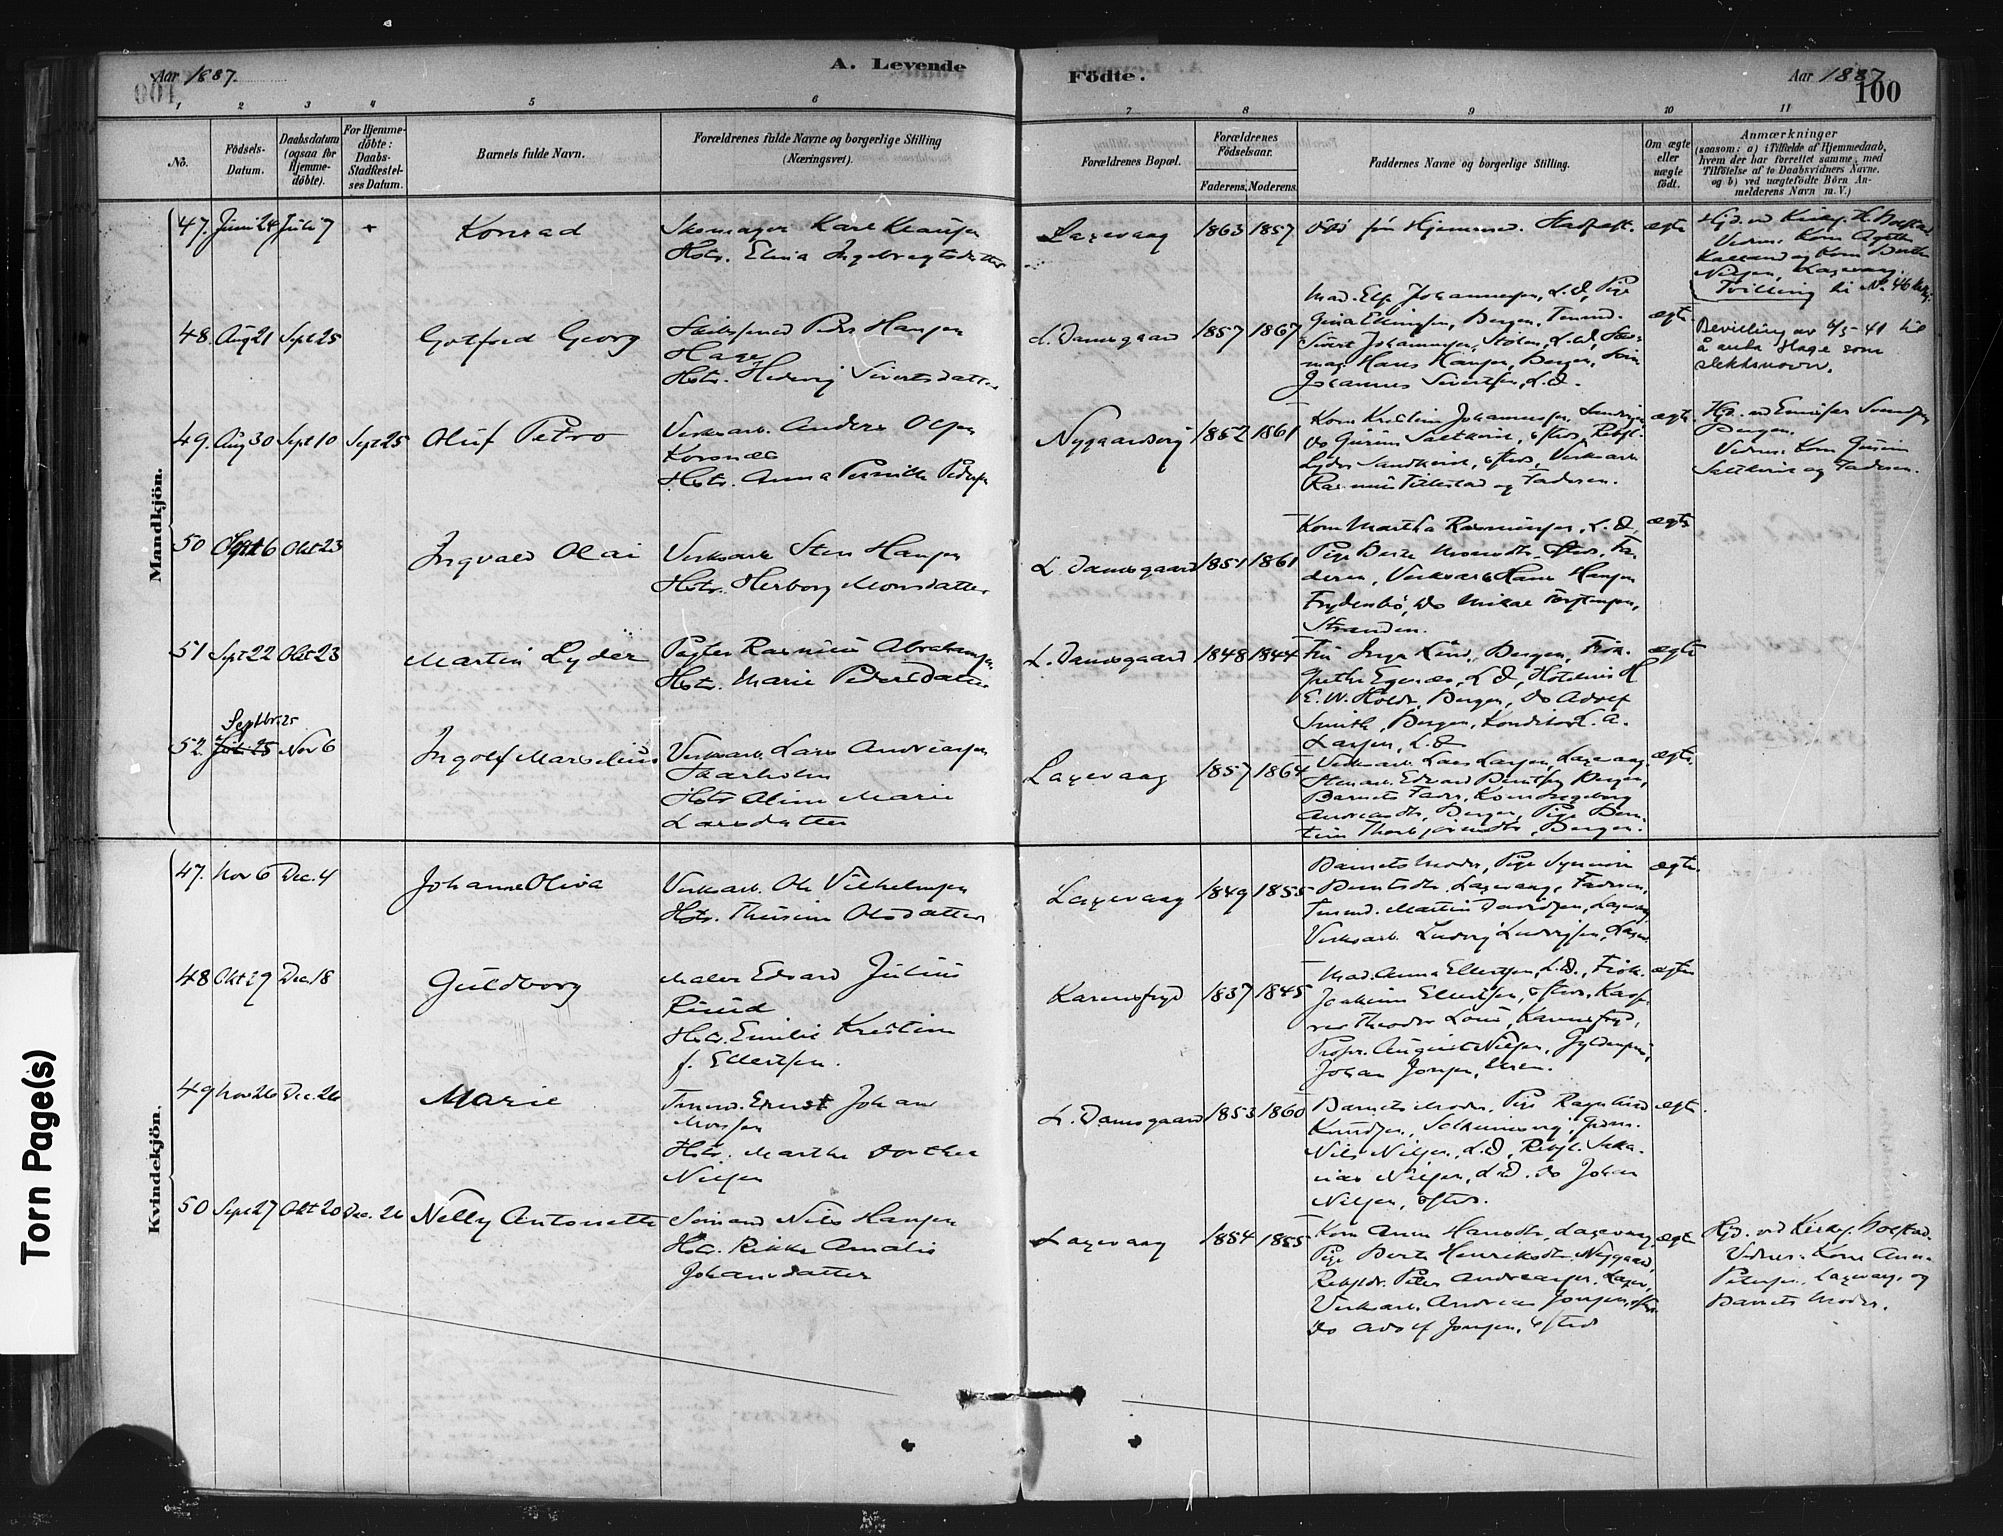 Aar 1887.
A. Levende
Födte.
Aar 1887
100
1 2 3 4 5 6 7 8 9 10 11
Nô.
Födsels-Datum.
Daabsdatum (ogsaa for Hjemme-döbte).
For Hjemme-döbte: Daabs-Stadfæstel-ses Datum.
Barnets fulde Navn.
Forældrenes fulde Navne og borgerlige Stilling (Næringsvei).
Forældrenes Bopæl.
Forældrenes Födselsaar.
Faderens. Moderens.
Faddernes Navne og borgerlige Stilling.
Om ægte eller uægte födt.
Anmærkninger
(saasom: a) i Tilfælde af Hjemmedaab,
hvem der har forrettet samme, med
Tilföielse af to Daabsvidners Navne.
og b) ved uægtefödte Börn An-
melderens Navn m. V.)
Mandkjön.
47. Juni 24 Juli 7 +
Konrad
Skomager Karl Klausen
Hstr. Elina Ingebregtsdatter
Laxevaag 1863 1857
Död för Hjemmed. Stadfæst. ægte
Hjd. ved Kirkes. H. Bolstad
Vidner: Kone
og Kone Berthe
Nilsen, Laxevaag.
Tvilling til No. 46
48. Aug 21 Sept 25
Gotfred Georg
Peder Hansen
Hage
Hstr. Hedevig Sivertsdatter
L. Damsgaard 1857 1867
Mad. Elg. Johannesen, L. D, Pige
Gina Ellingsen, Bergen, Tømmd.
Sivert Johannesen, Stølen, L. D,
Hans Hansen, Bergen,
Johannes Sivertsen, L. D.
ægte
Bevilling av 6/5-41 til
å anta Hage som
slektsnavn.
49. Aug 30 Sept 10 Sept 25
Oluf Petro
Verksarb. Anders Olsen
Korsnæs
Hstr. Anna Pernille Pedersen
Nygaardsvig 1852 1861
Kone Kristine Johannesen,
Do Gurine
Lyder Sandkvie, ofsteds, Verksarb
Rasmus Tillestad og Faderen.
ægte
Hjd. ved
Bergen.
Vidner: Kone Gurine
og Faderen.
50 Sept 6 Okt 23
Ingvald Olai
Verksarb Sten Hansen
Hstr. Herborg Monsdatter
L. Damsgaard 1851 1861
Kone Martha Rasmussen, L. D,
Pige Berte Monsdtr. ofsteds, Fa-
deren, Verksarb Hans Hansen
Frydenbö, Do Mikal Torstensen,
Stranden.
ægte
51 Sept 22 Okt 23
Martin Lyder
Rasmus Abrahamsen
Hstr. Marie Pedersdatter
L. Damsgaard 1848 1844
Fru Inga Lund, Bergen, Frök.
Grethe Egenæs, L D, Hotelvert H
E. W. Holdt, Bergen, Do Adolf
Smith, Bergen, Konditor L. A.
Larsen, L. D
ægte
Septbr. 25
52. Nov 6
Ingolf Marselius
Verksarb. Lars Andreasen
Skarholm
Hstr Oline Marie
Larsdatter
Laxevaag 1857 1864
Verksarb. Lars Larsen, Laxevaag
Edvard Berntsen, Bergen,
Barnets Fader, Kone Ingeborg
Andreasdtr, Bergen, Pige Ben-
tine Thorbjörnsdtr, Bergen.
ægte.
Kvindekjön.
47. Nov 6 Dec. 4
Johanne Oliva
Verksarb. Ole Vilhelmsen
Hstr. Thrine Olsdatter
Laxevaag 1849 1855
Barnets Moder, Pige Synneve
Berntsdtr, Laxevaag, Faderen,
Tømmd. Martin Davidsen, Laxevaag
Verksarb. Ludvig Ludvigsen, Laxev.
ægte.
48 Okt 29 Dec 18
Guldborg
Maler Edvard Julius
Ruud
Hstr. Emilie Kristine
f. Ellertsen.
Karensfryd 1837 1845
Mad. Anna Ellertsen, L. D., Frök.
Joakime Ellertsen, ofsteds, Kasse-
rer Theodor Louis, Karensfryd,
Propr. August Nilsen,
Johan Jonsen,
ægte
49 Nov 26 Dec. 26
Marie
Tømmd. Ernst Johan
Monsen
Hstr. Marthe Dorthea
Nilsen
L. Damsgaard 1853 1860
Barnets Moder, Pige Ragnhild
Knudsen, Solheimsvig,
Nils Nilsen, L. D, Rebsl. Seka-
rias Nilsen, L. D. Do Johan
Nilsen, ofsteds.
ægte.
50 Sept 27 Okt 20 Dec. 26
Nelly Antonette
Sømand Nils Hansen
Hstr. Rikke Amalie
Johansdatter
Laxevaag 1854 1855
Kone Anne Hansdtr, Laxevaag
Pige Berte Henriksdtr. Nygaard,
Rebsl. Peter Andreassen, Laxev,
Verksarb. Andreas Jonsen, ofsteds.
Do Adolf Jonsen, ofsteds
ægte
Hjd. ved Kirkes. Bolstad.
Vidner: Kone Anne
Petersen, Laxevaag, og
Barnets Moder.
Torn Page(s)